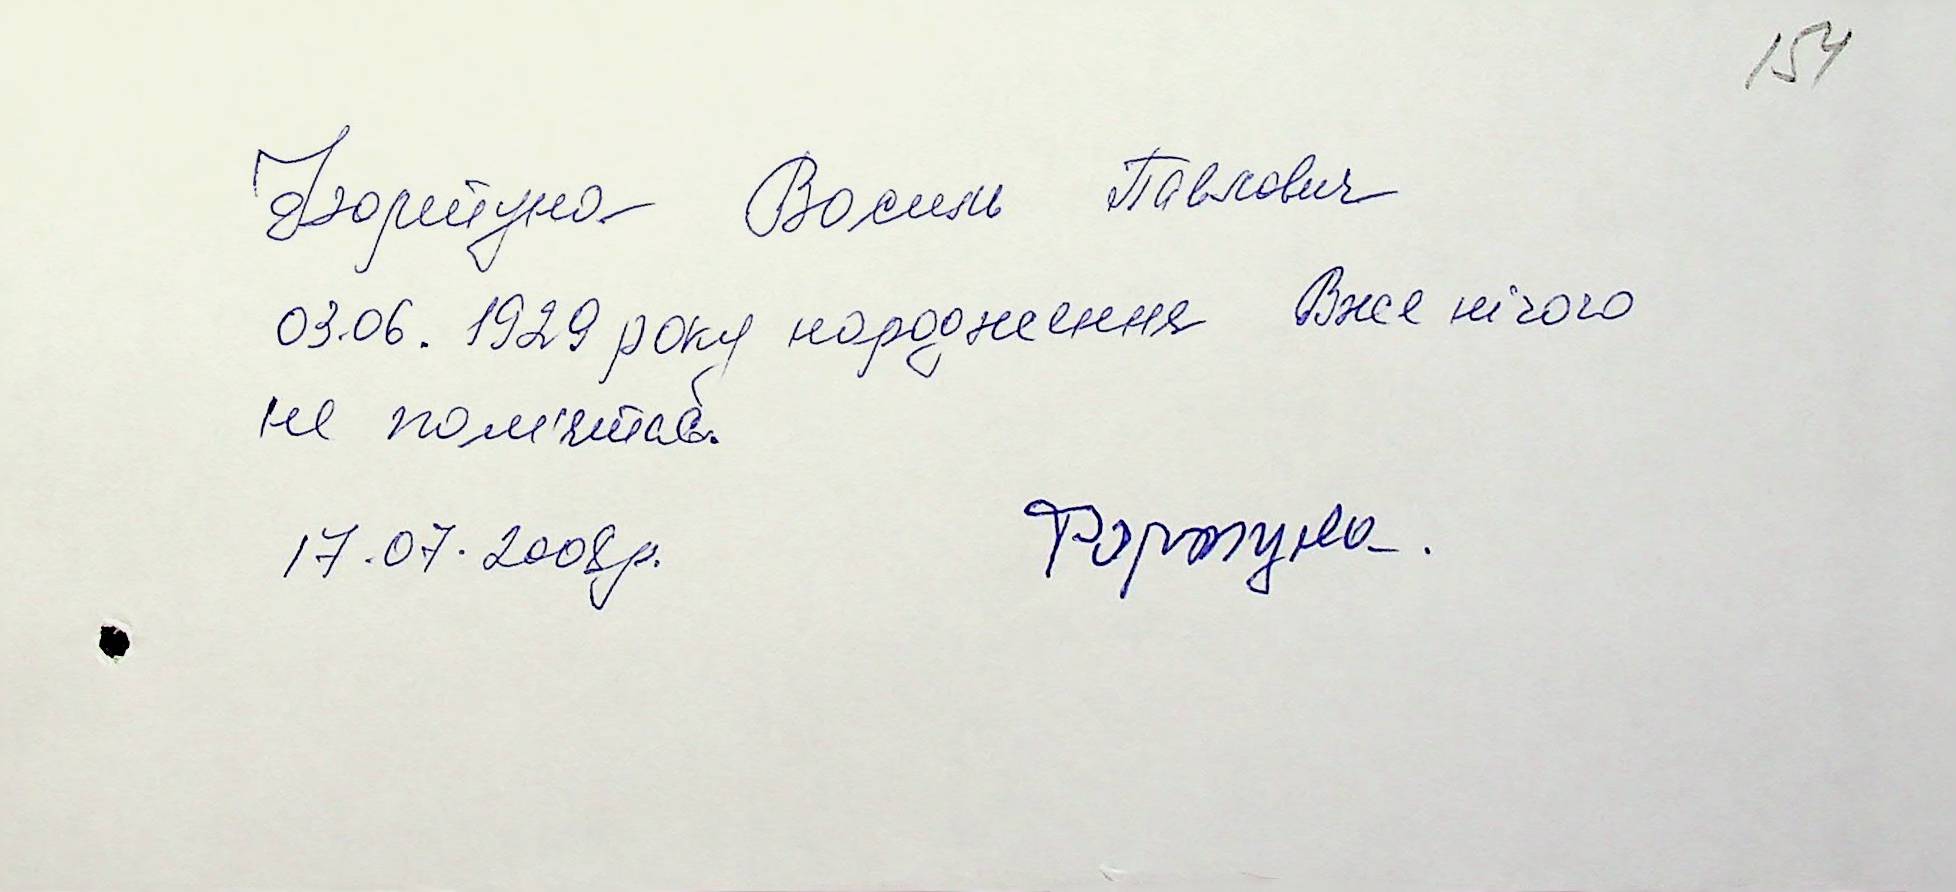 154
Фортуна Василь Павлович
03.06.1929 року народження Вже нічого
не пам'ятає.
17.07.2008р. Фортуна.